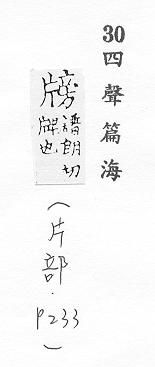 30四聲篇海
牓譜朗切
牌也
（片部．P233）